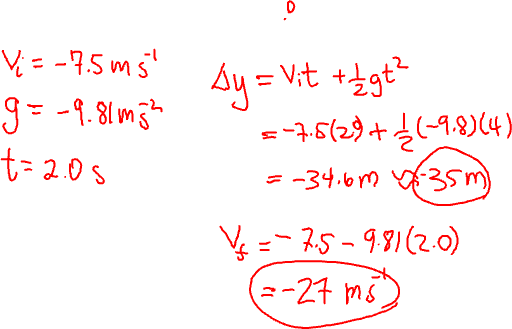 .0
Vi = -7.5 m s⁻¹
g = -9.81 m s⁻²
t = 2.0 s
Δy = Vit + ½gt²
= -7.5(2.0) + ½(-9.8)(4)
= -34.6m ≈ -35m
Vf = -7.5 - 9.81(2.0)
= -27 ms⁻¹